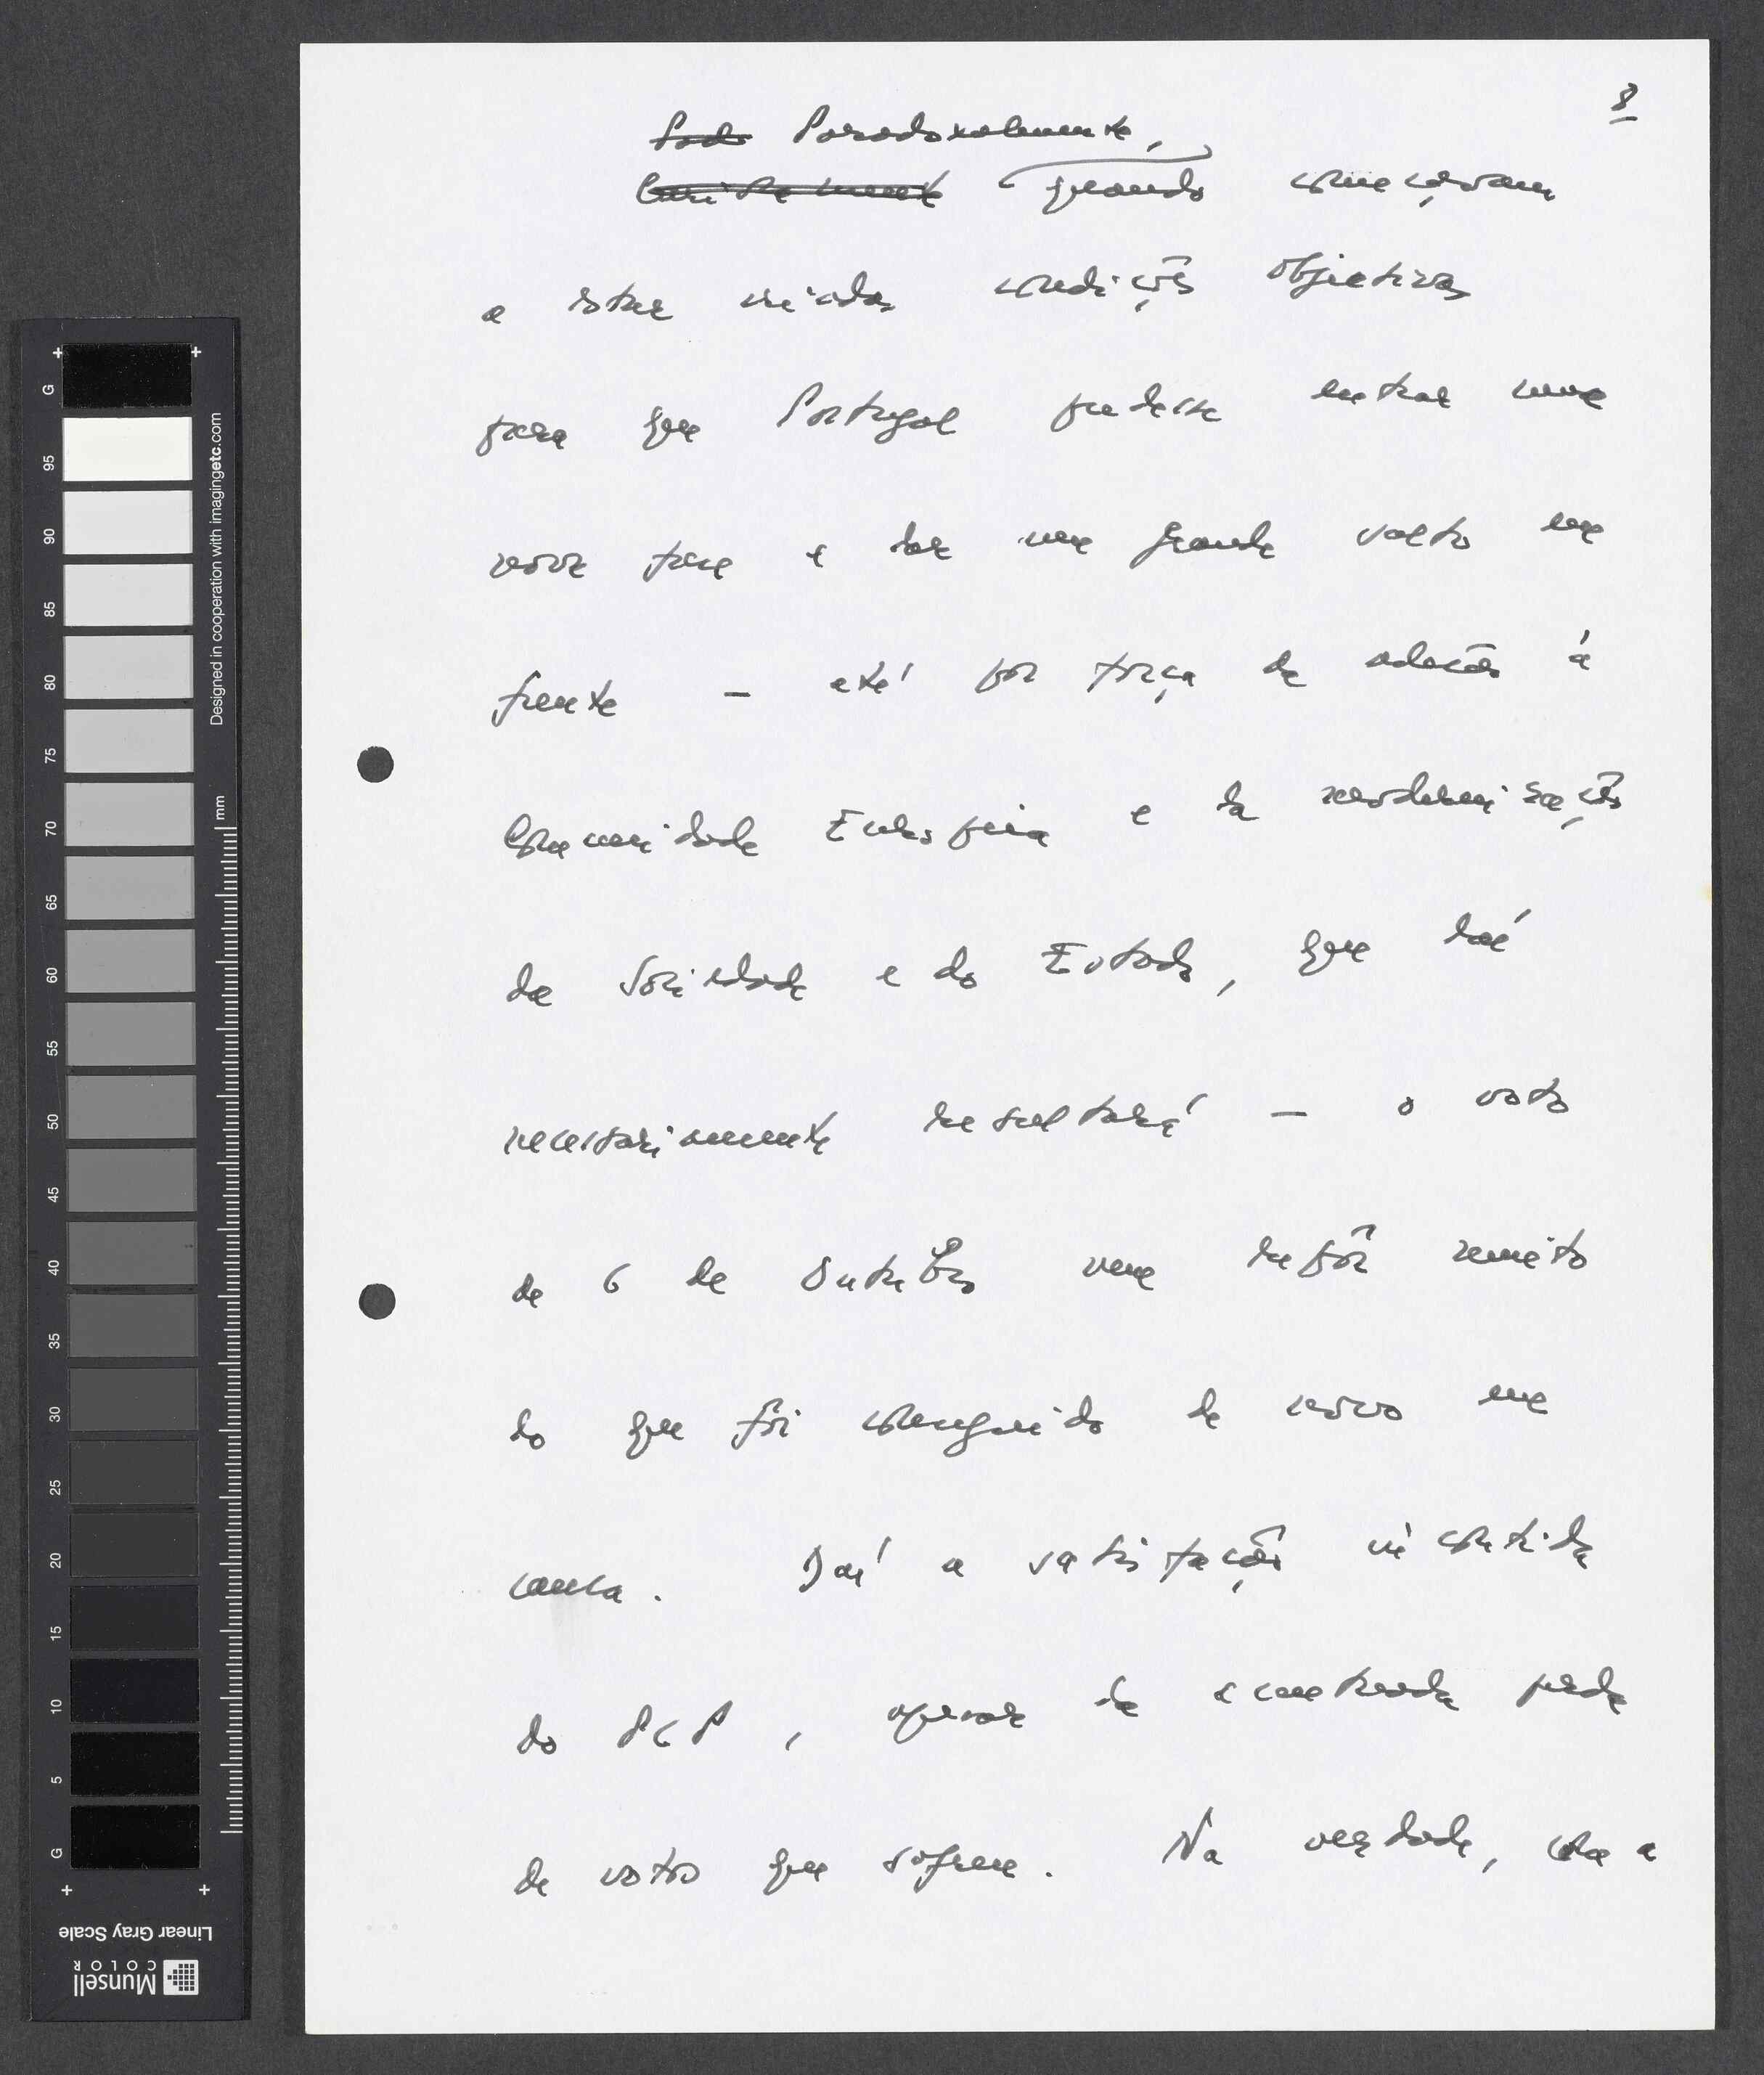 8
Pado Paradoxalmente,
Curiosamente quando começavam
a estar criadas condições objectivas
para que Portugal pudesse entrar numa
nova fase e dar um grande salto em
frente – até por força da adesão à
Comunidade Europeia e da modernização
da Sociedade e do Estado, que daí
necessariamente resultará – o voto
de 6 de Outubro vem repôr muito
do que foi conseguido de novo em
causa. Daí a satisfação incontida
do PCP, apesar da acentuada perda
de votos que sofreu. Na verdade, com a
G
95
90
85
80
75
70
65
60
55
50
45
40
35
30
25
20
15
10
5
G
mm
Designed in cooperation with imagingetc.com
Linear Gray Scale
Munsell
COLOR